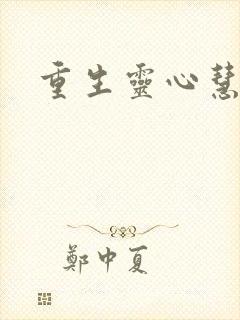 重生靈心慧
鄭中夏